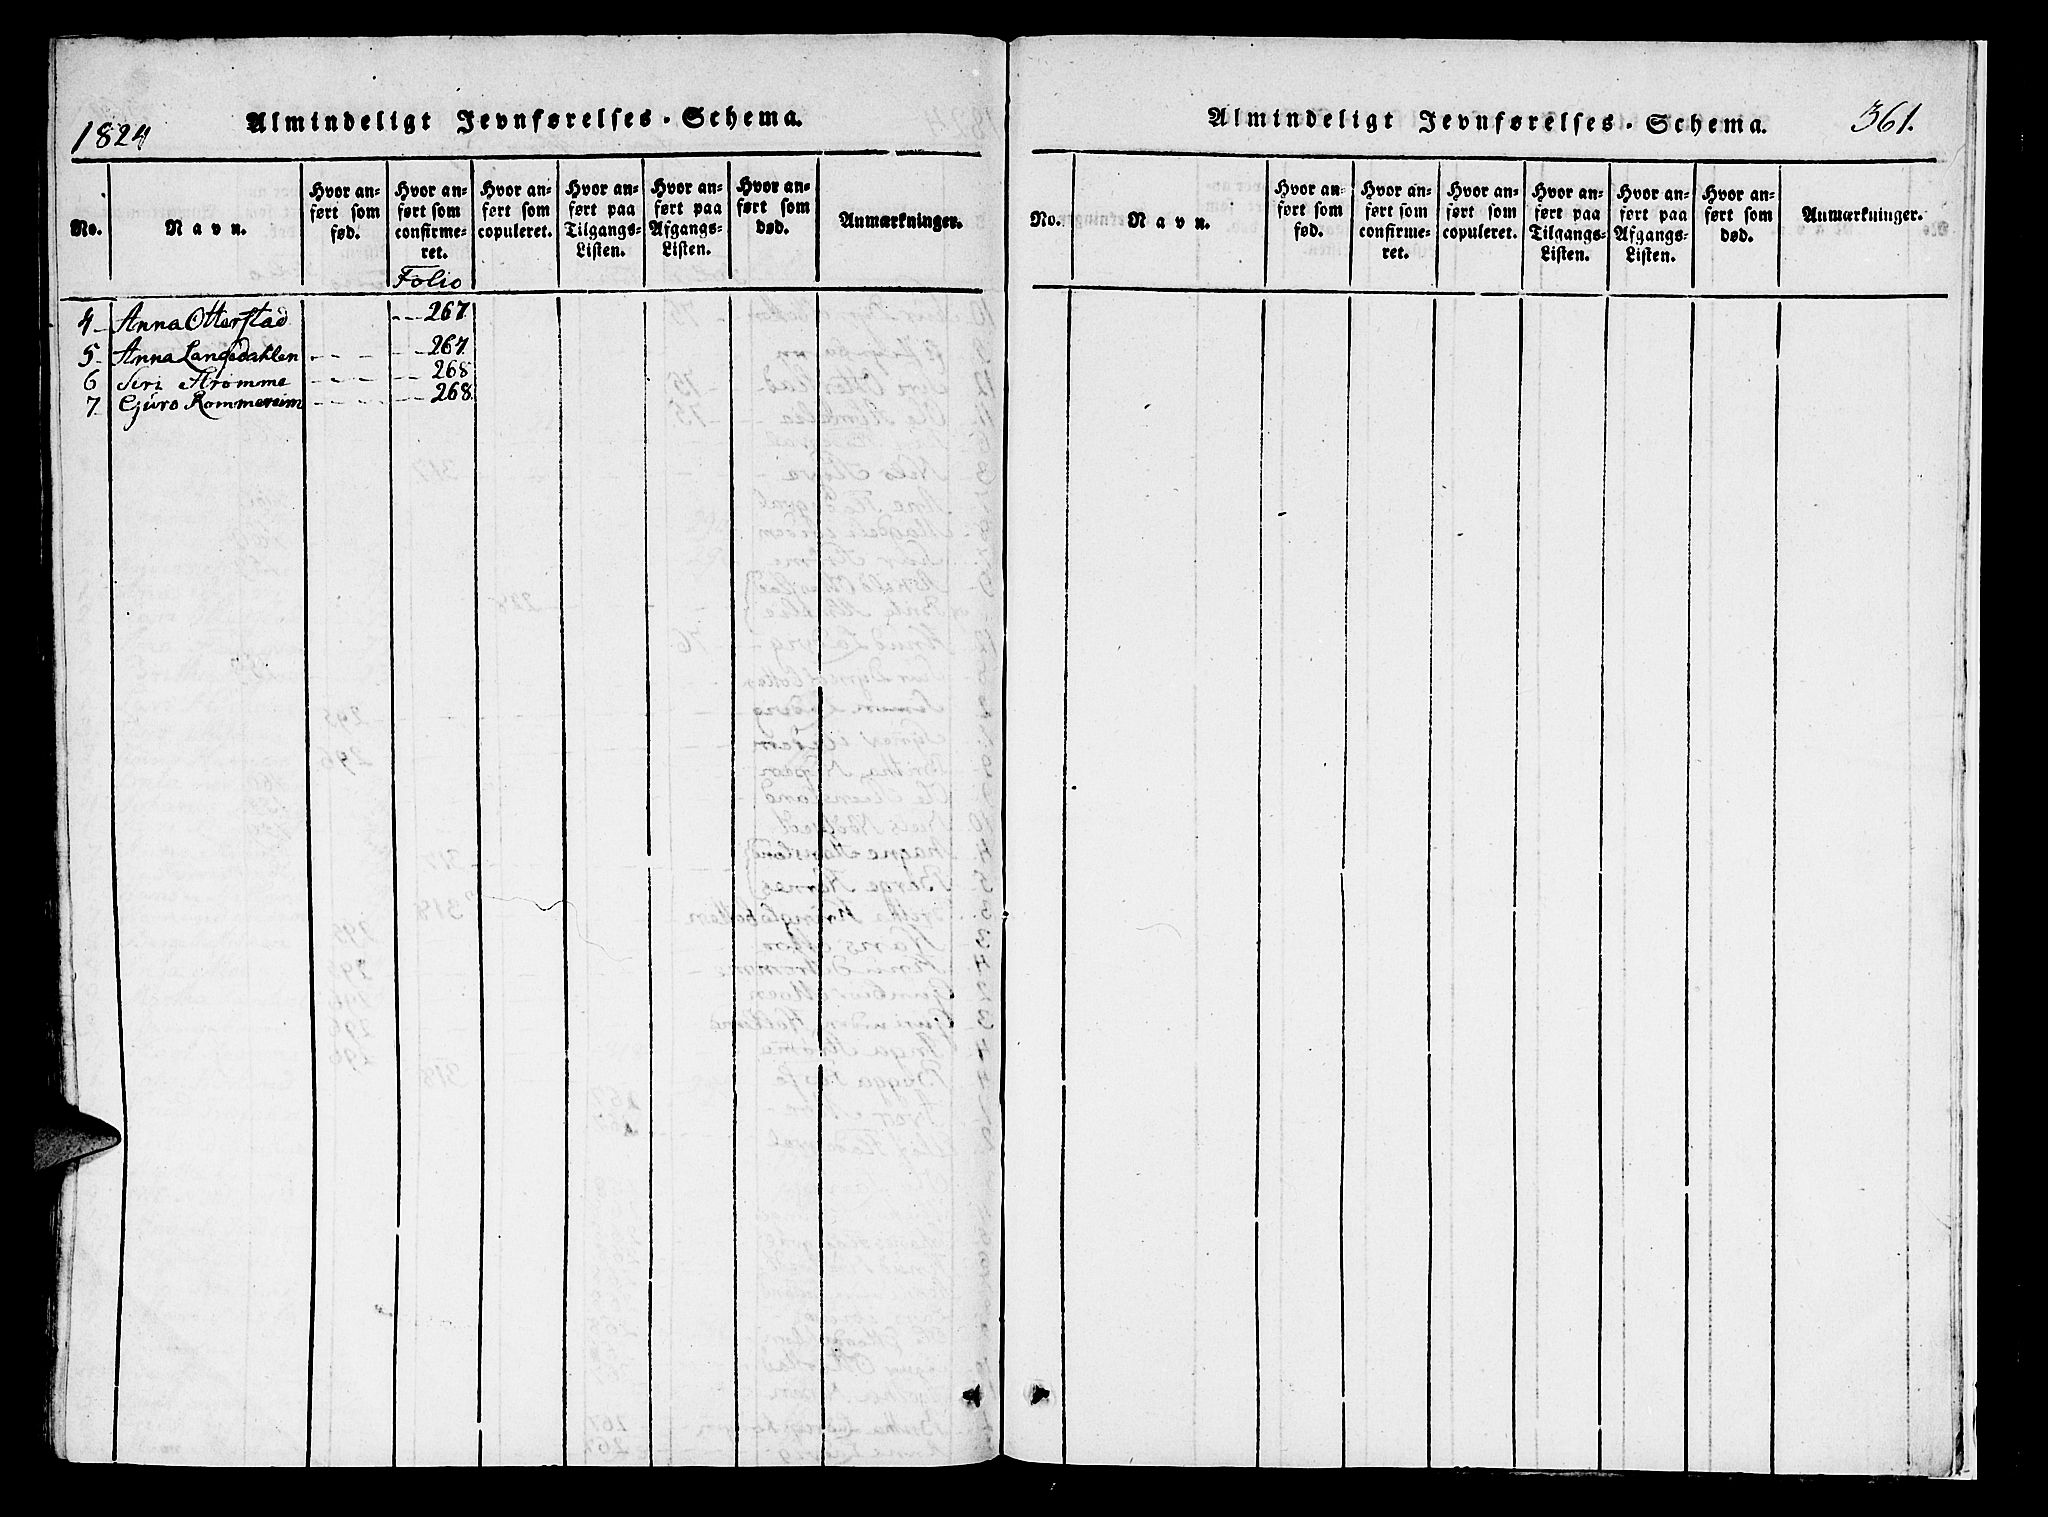 1824
Almindeligt Jevnførelses-Schema.
No.
Navn.
Hvor an-
ført som
fød.
Hvor an-
ført som
confirme-
ret.
Hvor an-
ført som
copuleret.
Hvor an-
ført paa
Tilgangs-
Listen.
Hvor an-
ført paa
Afgangs-
Listen.
Hvor an-
ført som
død.
Anmærkninger.
Folio
4 Anna Otterstad 267
5 Anna Langedahlen 267
6 Siri Strömme 268
7 Guro Rommereim 268
Almindeligt Jevnførelses-Schema.
361.
No.
Navn.
Hvor an-
ført som
fød.
Hvor an-
ført som
confirme-
ret.
Hvor an-
ført som
copuleret.
Hvor an-
ført paa
Tilgangs-
Listen.
Hvor an-
ført paa
Afgangs-
Listen.
Hvor an-
ført som
død.
Anmærkninger.